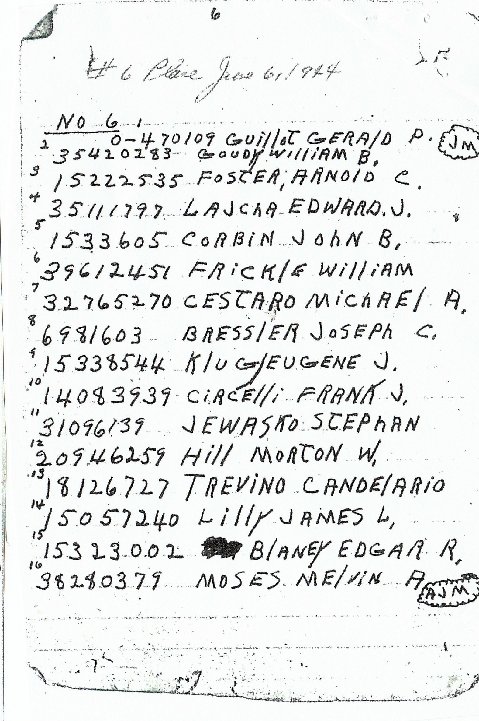 6
# 6 Plane June 6, 1944
NO 6
1 0-470109 GUILLOT GERALD P. JM
2 35420283 GOUDY WILLIAM B.
3 15222535 FOSTER, ARNOLD C.
4 35111797 LAJCHA EDWARD. J.
5 1533605 CORBIN JOHN B,
6 39612451 FRICKLE WILLIAM
7 32765270 CESTARO MICHAEL A,
8 6981603 BRESSLER JOSEPH C.
9 15338544 KLUG, EUGENE J.
10 14083939 CIRCELLI FRANK J,
11 31096139 JEWASKO STEPHAN
12 20946259 HILL MORTON W,
13 18126727 TREVINO CANDELARIO
14 15057240 LILLY JAMES L,
15 15323002 BLANEY EDGAR R,
16 38280379 MOSES MELVIN A AJM